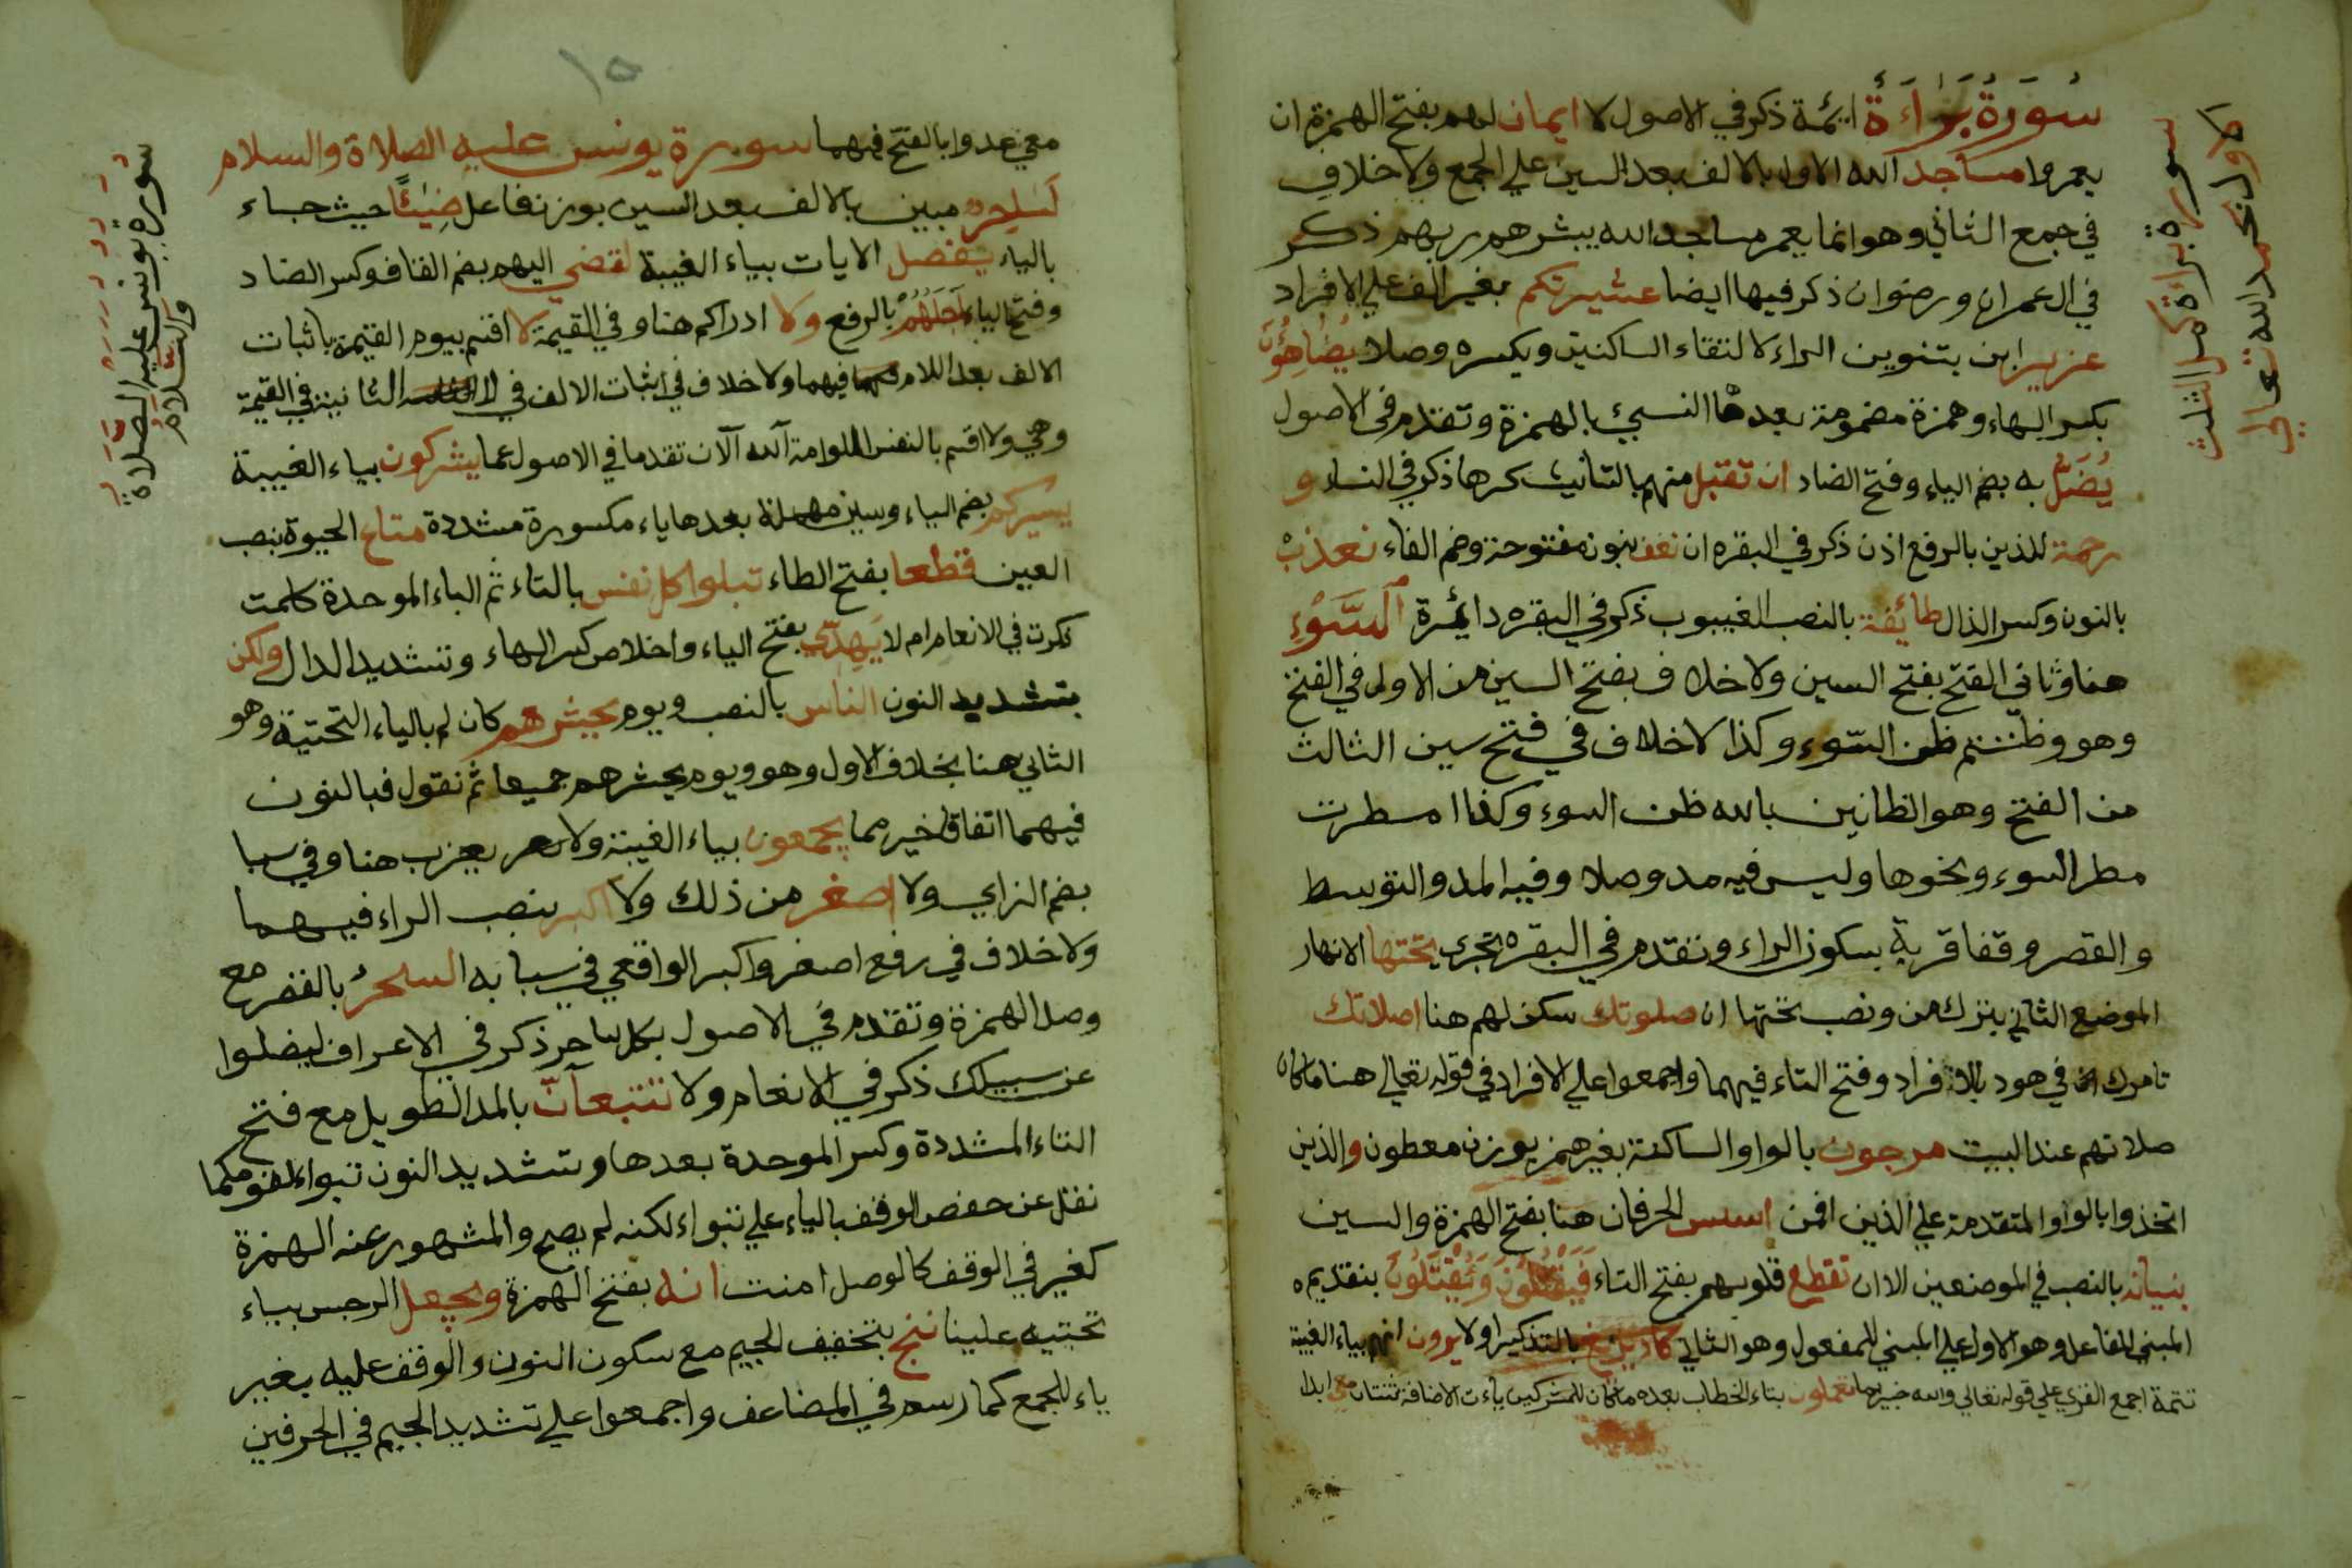 سُورَةُ بَرَاءَةٌ ائمة ذكر في الاصول لا ايمان لهم بفتح الهمزة ان
يعمروا مساجد الله الاول بالالف بعد السين علي الجمع ولا خلاف
في جمع الثاني وهو انما يعمر مساجد الله يبشرهم ربهم ذكر
في ال عمران ورضوان ذكر فيها ايضا عشيرتكم بغير الف علي الافراد
عزير ابن بتنوين الراء لالتقاء الساكنين ويكسره وصلا يُضَاهِؤُنَ
بكسر الهاء وهمزة مضمومة بعدها النسئ بالهمزة وتقدم في الاصول
يُضَلُّ به بضم الياء وفتح الضاد ان تقبل منهم بالتانيث كرها ذكر في النساء و
رحمة للذين بالرفع اذن ذكر في البقره ان نعف بنون مفتوحة وضم الفاء نعذب
بالنون وكسر الذال طائفة بالنصب الغيبوب ذكر في البقره دائرة اَلسَّوْءِ
هنا وثاني الفتح بفتح السين ولا خلاف بفتح السين من الاولي في الفتح
وهو وظننتم ظن السّوء وكذا لا خلاف في فتح سين الثالث
من الفتح وهو الظانين بالله ظن السوء وكذا امطرت
مطر السوء ونحوها وليس فيه مد وصلا وفيه المد والتوسط
والقصر وقفا قربة بسكون الراء وتقدم في البقره تجري تحتها الانهار
الموضع الثاني بترك من ونصب تحتها ان صلوتك سكن لهم هنا اصلاتك
تامرك في هود بالافراد وفتح التاء فيهما واجمعوا علي الافراد في قوله تعالي هنا ماكان
صلاتهم عند البيت مرجون بالواو الساكنة بغير همز بوزن معطون والذين
اتخذوا بالواو المتقدمة علي الذين افمن اسس الحرفان هنا بفتح الهمزة والسين
بنيانه بالنصب في الموضعين الا ان تقطع قلوبهم بفتح التاء فَيَقْتُلُونَ وَيُقْتَلُونَ بتقديم
المبني للفاعل وهو الاول علي المبني للمفعول وهو الثاني كاد يزيغ بالتذكير اولا يرون انهم بياء الغيبة
تتمة اجمع القري علي قوله تعالي والله خبير بما تعملون بتاء الخطاب بعده ماكان للمشركين ياءت الاضافة ثنتان معي ابدا
سورة براءة كمل الثلث
الاول بحمد الله تعالي
١٥
معي عدوا بالفتح فيهما سورة يونس عليه الصلاة والسلام
لَسَاحِر مبين بالالف بعد السين بوزن فاعل ضِيَٓئًا حيث جاء
بالياء يفصل الايات بياء الغيبة لقضي اليهم بضم القاف وكسر الضاد
وفتح الياء اَجَلُهُمْ بالرفع ولا ادراكم هنا وفي القيمة لا اقسم بيوم القيمة باثبات
الالف بعد اللام فيهما ولا خلاف في اثبات الالف في الثانيتين في القيمة
وهي ولا اقسم بالنفس اللوامة آلله آلان تقدما في الاصول عما يشركون بياء الغيبة
يسيركم بضم الياء وسين مهملة بعدها ياء مكسورة مشددة متاع الحيوة بنصب
العين قطعا بفتح الطاء تبلوا كل نفس بالتاء ثم الباء الموحدة كلمت
ذكرت في الانعام ام لا يَهِدّي بفتح الياء واخلاص كسر الهاء وتشديد الدال ولكن
بتشديد النون الناس بالنصب ويوم يحشرهم كان لم بالياء التحتية وهو
الثاني هنا بخلاف الاول وهو ويوم يحشرهم جميعا ثم نقول فبالنون
فيهما اتفاقا خير مما يجمعون بياء الغيبة ولا يعزب هنا وفي سبا
بضم الزاي ولا اصغر من ذلك ولا اكبر بنصب الراء فيهما
ولا خلاف في رفع اصغر واكبر الواقعي في سبا به السحرُ بالقصر مع
وصل الهمزة وتقدم في الاصول بكل ساحر ذكر في الاعراف ليضلوا
عن سبيلك ذكر في الانعام ولا تتبعآنّ بالمد الطويل مع فتح
التاء المشددة وكسر الموحدة بعدها وتشديد النون تبواء لقومكما
نقل عن حفص الوقف بالياء علي تبواء لكنه لم يصح والمشهور عنه الهمزة
كغيره في الوقف كالوصل امنت انه بفتح الهمزة ويجعل الرجس بياء
تحتيه علينا ننج بتخفيف الجيم مع سكون النون والوقف عليه بغير
ياء للجمع كما رسم في المضاعف واجمعوا علي تشديد الجيم في الحرفين
سورة يونس عليه الصّلاة
والسّلام